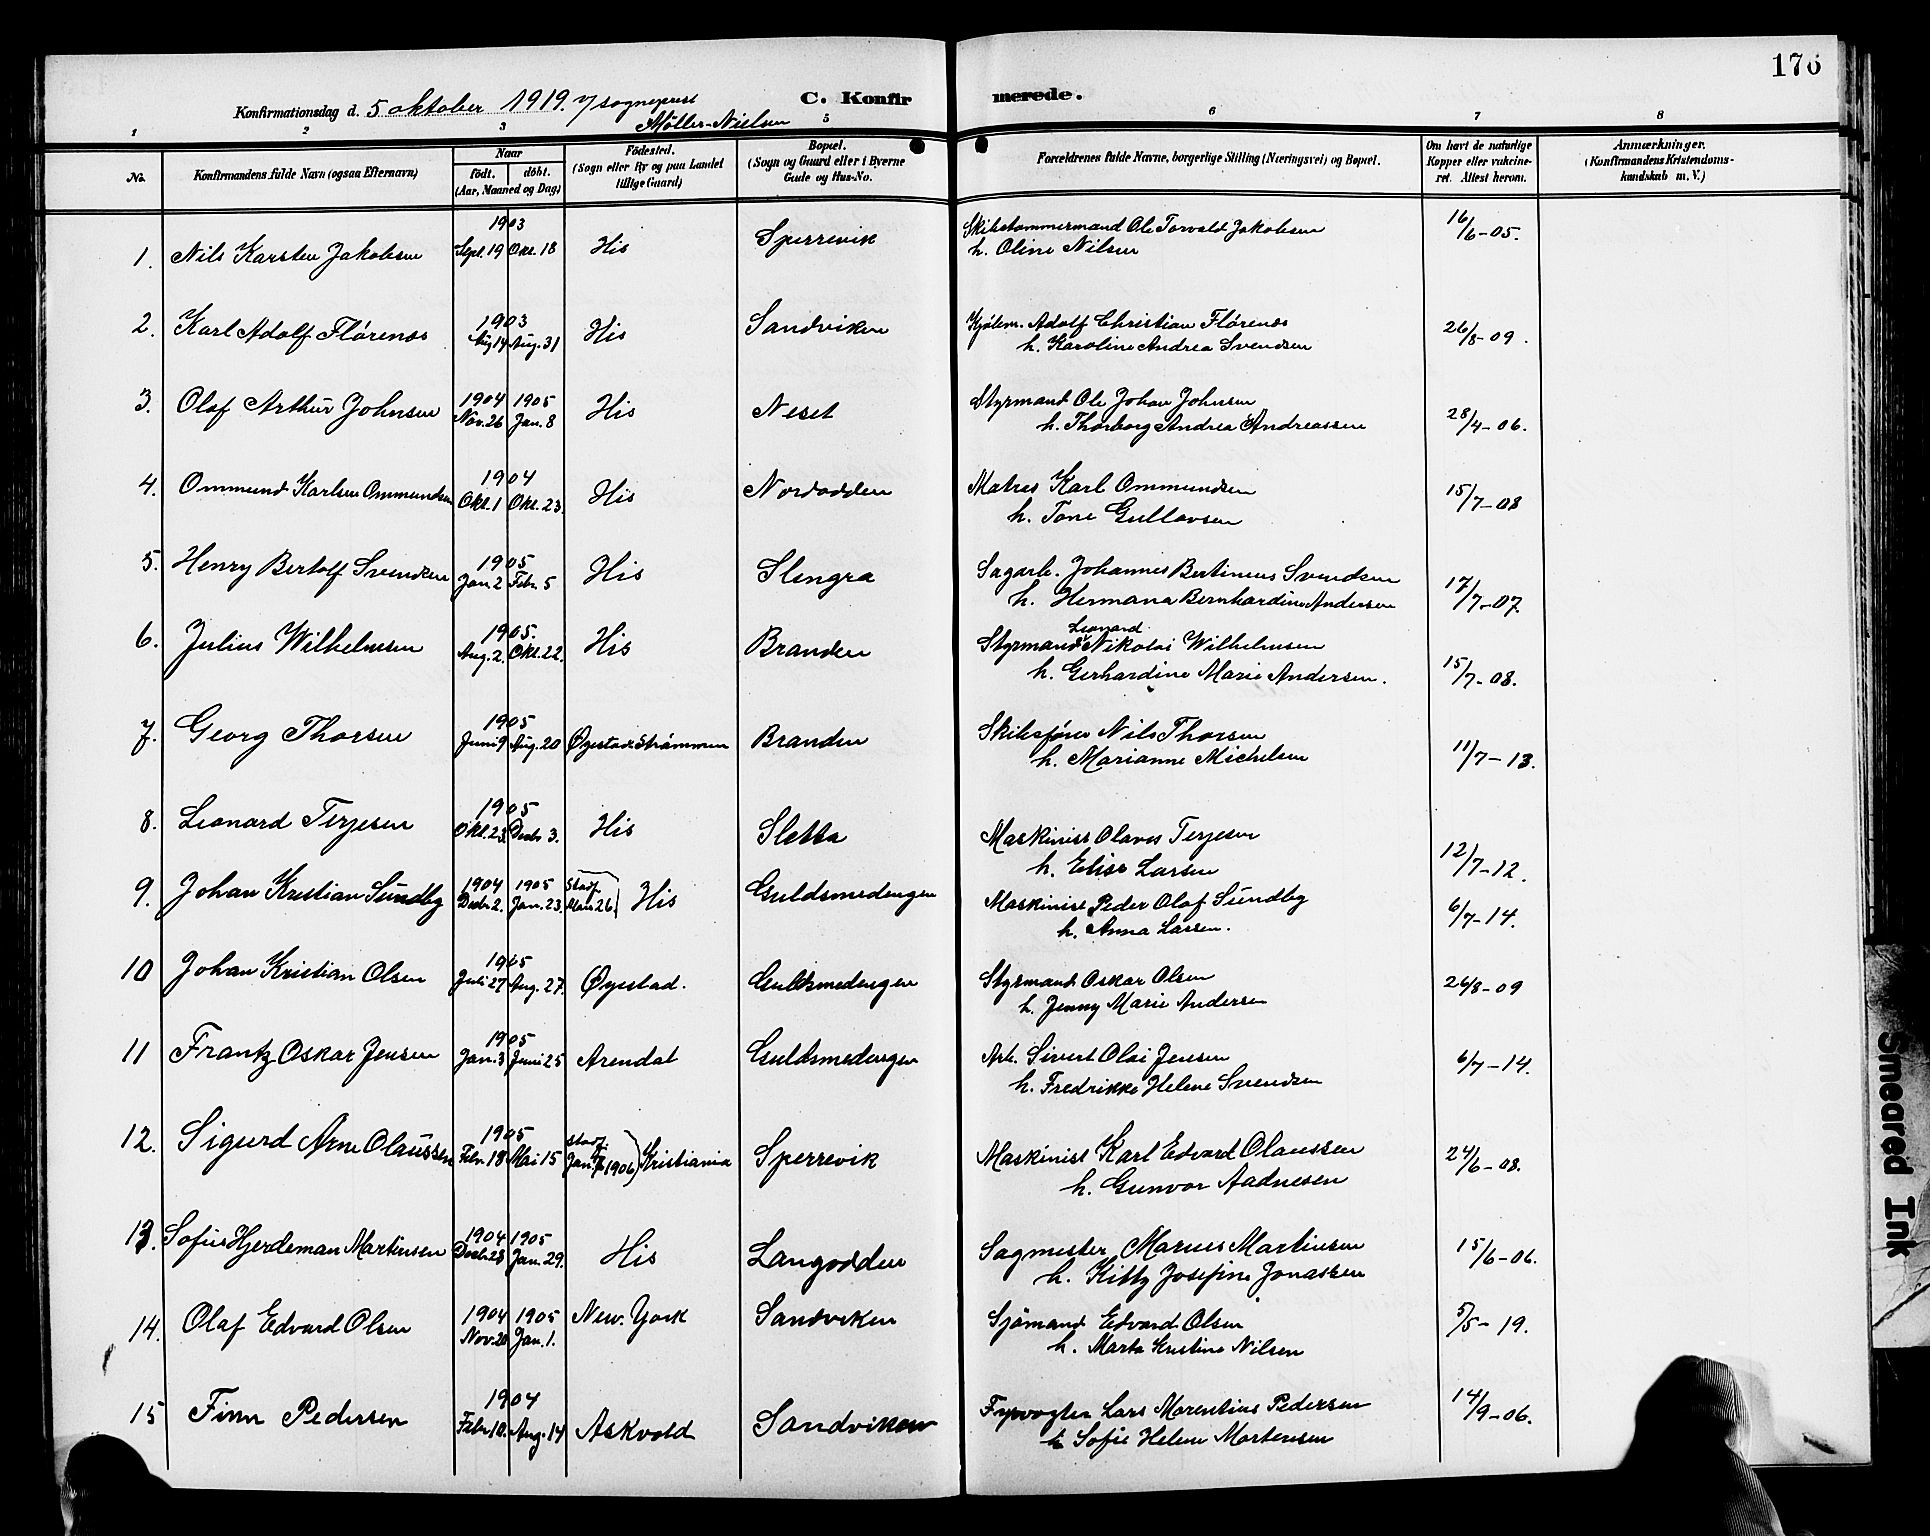 176
Konfirmationsdag d. 5 oktober 1919. v/ sogneprest
Møller-Nielsen
C. Konfirmerede.
1 2 3 5 6 7 8
No. Konfirmandens fulde Navn (ogsaa Efternavn) Naar født. døbt. (Aar, Maaned og Dag) Fødested. (Sogn eller By og paa Landet tillige Gaard) Bopæl. (Sogn og Gaard eller i Byerne Gade og Hus-No. Forældrenes fulde Navne, borgerlige Stilling (Næringsvei) og Bopæl. Om havt de naturlige Kopper eller vakcineret. Attest herom. Anmærkninger. (Konfirmandens Kristendomskundskab m. V.)
1903
1. Nils Karsten Jakobsen Sept. 19 Okt. 18 His Sperrevik Skibstømmermand Ole Torvald Jakobsen 16/6-05.
h. Oline Nilsen
1903
2. Karl Adolf Flørenæs Aug 14 Aug. 31 His Sandviken Kjølem. Adolf Christian Flørenæs 26/8-09.
h. Karoline Andrea Svendsen
1904 1905
3. Olaf Arthur Johnsen Nov. 26 Jan. 8 His Neset Styrmand Ole Johan Johnsen 28/4-06.
h. Thorborg Andrea Andreassen
1904
4. Ommund Karlsen Ommundsen Okt. 1 Okt. 23. His Nordodden Matros Karl Ommundsen 15/7-08
h. Tone Gullovsen
1905
5. Henry Bertolf Svendsen Jan. 2 Febr. 5 His Slengra Sagarb. Johannes Bertineus Svendsen 17/7-07.
h. Hermana Bernhardine Andersen
1905.
6. Julius Wilhelmsen Aug. 2. Okt. 22. His Branden Styrmand Leonard Nikolai Wilhelmsen 15/7-08.
h. Gerhardine Marie Andersen.
1905
7. Georg Thorsen Juni 9 Aug. 20 Øyestad Strømmen Branden Skibsfører Nils Thorsen 11/7-13.
h. Marianne Michelsen
1905
8. Leonard Terjesen Okt. 23 Decbr 3. His Sletta Maskinist Olaves Terjesen 12/7-12.
h. Elise Larsen
1904 1905 Stadf.
9. Johan Kristian Sundby Decbr 2. Jan. 23. Mars 26. His Guldsmedengen Maskinist Peder Olaf Sundby 6/7-14.
h. Anna Larsen.
1905
10 Johan Kristian Olsen Juli 27 Aug. 27. Øyestad. Guldsmedengen Styrmand Oskar Olsen 26/8-09
h. Jenny Marie Andersen
1905
11 Frantz Oskar Jensen Jan. 3 Juni 25 Arendal Guldsmedengen Arb. Sivert Olai Jensen 6/7-14.
h. Fredrikke Helene Svendsen
1905 stadf.
12. Sigurd Arne Olaussen Febr. 18 Mai 15 Jan. 1906 Kristiania Sperrevik Maskinist Karl Edvard Olaussen 24/6-08.
h. Gunvor Aadnesen
1904 1905
13. Sofus Hjerdeman Martinsen Decbr 28 Jan. 29. His Langodden Sagmester Marius Martinsen 15/6-06.
h. Kitty Josefine Jonassen
1904 1905
14. Olaf Edvard Olsen Nov. 20 Jan. 1. New. York Sandviken Sjømand Edvard Olsen 5/5-19.
h. Marta Kristine Nilsen
1904
15 Finn Pedersen Febr. 10. Aug. 14 Askvold Sandviken Fyrvogter Lars Morentius Pedersen 14/9-06.
h Sofie Helene Mortensen
Smeared Ink